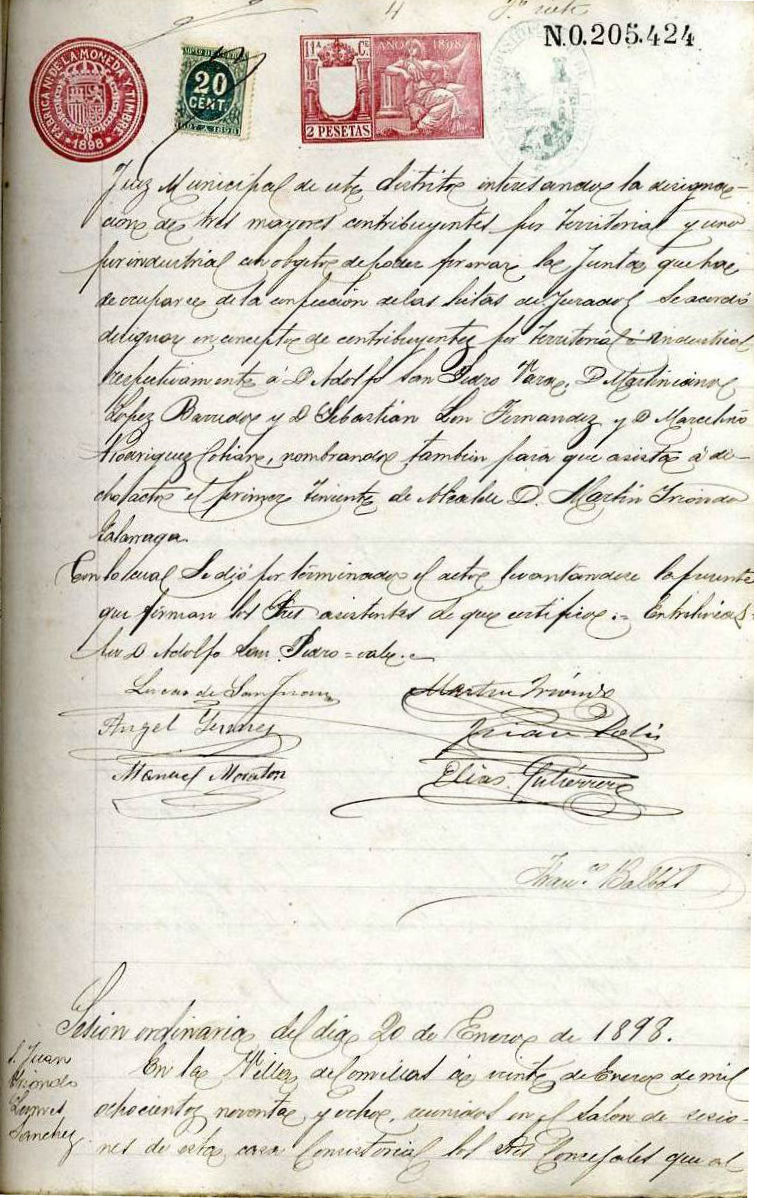 4
N.0.205.424
FABRICA NL DE LA MONEDA Y TIMBRE
1898
20
CENT.
11ª Cª
AÑO 1898
2 PESETAS
Juez Municipal de este distrito interesando la designa-
cion de tres mayores contribuyentes por territorial y uno
por industrial con objeto de poder formar la Junta que ha
de ocuparse de la confección de las listas de Jurados, se acordó
designar en concepto de contribuyentes por territorial é industrial
respectivamente á D Adolfo San Pedro Vara, D Martiniano
Lopez Barredo y D Sebastián Fernandez y D Marcelino
Rodriguez Cobian, nombrando tambien para que asista á di-
cho acto el primer Teniente de Alcalde D. Martín Iriondo
Galarraga.
Con lo cual se dió por terminado el acto levantandose la presente
que firman los Sres asistentes de que certifico.= Entrelineas=
D Adolfo San Pedro=vale.=
Lucas de San Juan
Martin Iriondo
Angel
Manuel Moraton
Elias Gutiérrez
Franco Balbás
Sesión ordinaria del dia 20 de Enero de 1898.
S. Juan
Iriondo
Sanchez
En la Villa de Comillas á veinte de Enero de mil
ochocientos noventa y ocho, reunidos en el salon de sesio-
nes de esta casa Consistorial los Sres Concejales que al